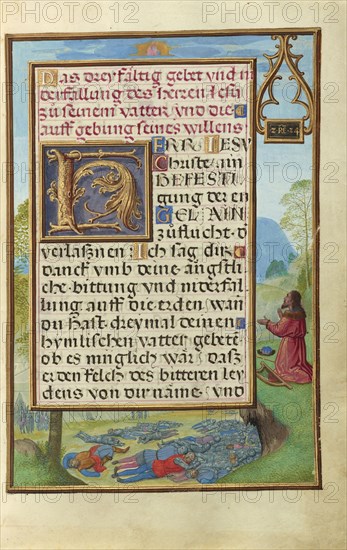 Das dreyfältig gebet vnd ni
derfallung des Herren Jesu
zu seinem vatter vnd die
auffgebung seines willens
HERR IESV
Christe ain
BEFESTI
gung der en
GEL AIN
zuflucht d
verlasznen: Ich sag dir
danck vmb deine angstli
che bittung vnd niderfal
lung auff die erden, wan
du hast dreymal deinen
hymlischen vatter gebetē
ob es müglich wär dasz
er den kelch des bitteren ley
dens von dir näme vnd